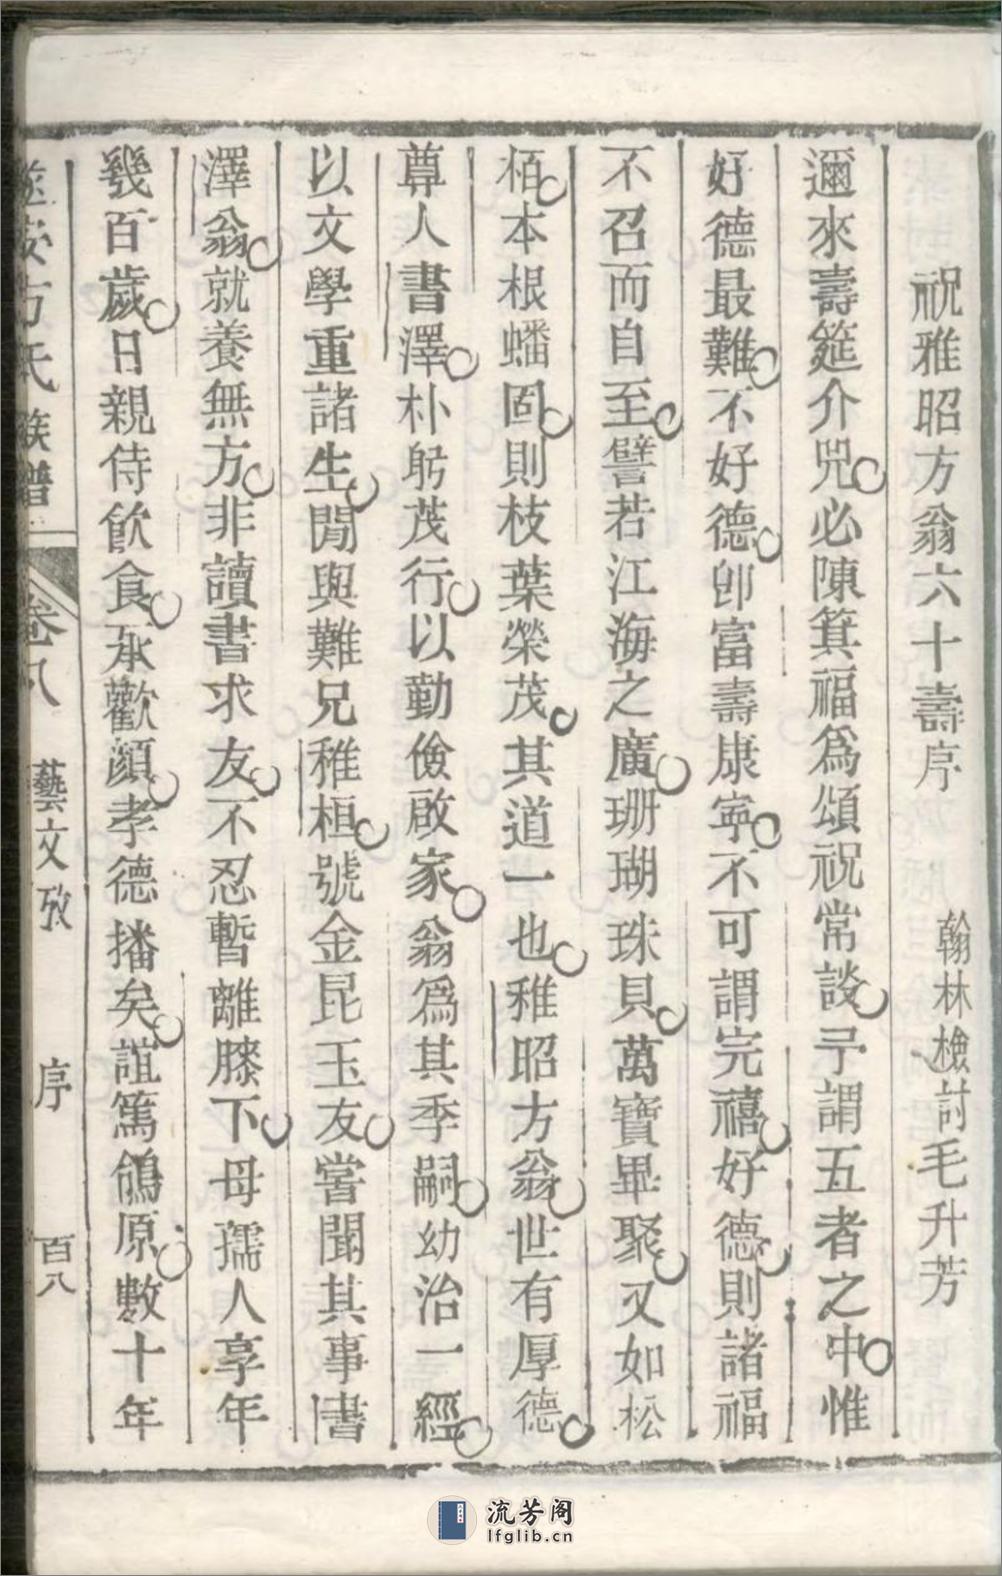 祝雅昭方翁六十壽序　翰林檢討毛升芳
邇來壽筵介兕必陳箕福爲頌祝常談予謂五者之中惟
好德最難不好德卽富壽康寧不可謂完禧好德則諸福
不召而自至譬若江海之廣珊瑚珠貝萬寶畢聚又如松
栢本根蟠固則枝葉榮茂其道一也稚昭方翁世有厚德
尊人書澤朴躬茂行以勤儉啟家翁爲其季嗣幼治一經
以文學重諸生閒與難兄稚桓號金昆玉友嘗聞其事書
澤翁就養無方非讀書求友不忍暫離膝下母孺人享年
幾百歲日親侍飲食承歡顏孝德播矣誼篤鴒原數十年
遂安方氏族譜　卷八　藝文攷　序　百八
流芳阁
lfglib.cn